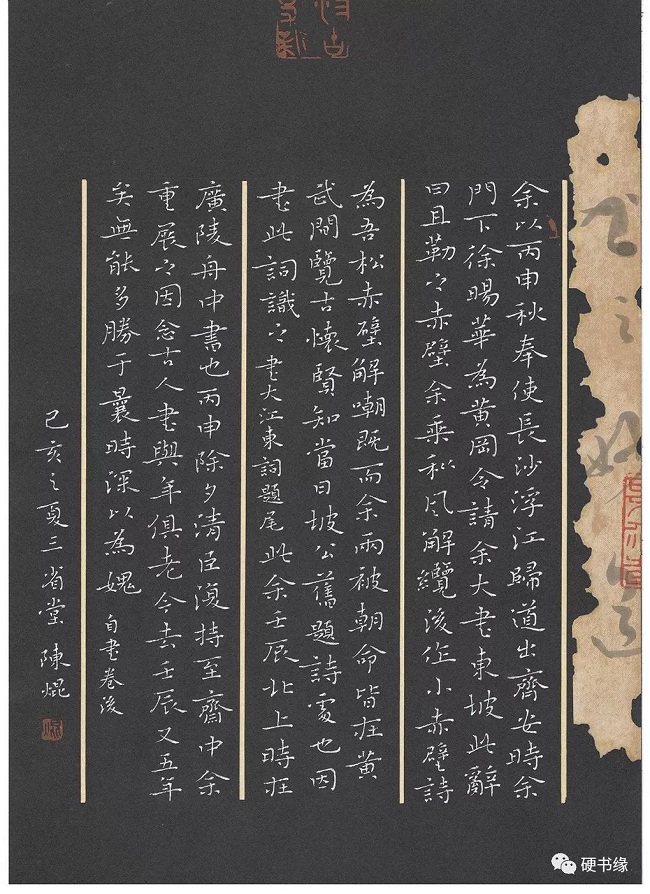 余以丙申秋奉使長沙浮江歸道出齊安時余
門下徐暘華為黃岡令請余大書東坡此辭
曰且勒之赤壁余乘秋風解纜後作小赤壁詩
為吾松赤壁解嘲既而余兩被朝命皆在黃
武間覽古懷賢知當日坡公舊題詩處也因
書此詞識之書大江東詞題尾此余壬辰北上時在
廣陵舟中書也丙申除夕清臣復持至齋中余
重展之因念古人書與年俱老今去壬辰又五年
矣無能多勝于曩時深以為媿自書卷後
己亥之夏三省堂陳焜
硬书缘